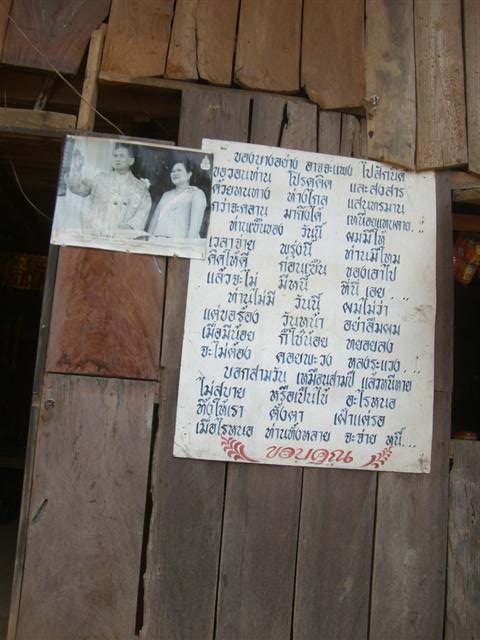 ของบางอย่าง อาจจะแพง ไปสักนิด
ขอวอนท่าน โปรดคิด และสงสาร
ด้วยหนทาง ห่างไกล แสนทรมาน
กว่าจะคลาน มาถึงได้ เหนื่อยแทบตาย..
ท่านเซ็นของ วันนี้ ผมมีให้
เวลาจ่าย พรุ่งนี้ ท่านมีไหม
คิดให้ดี ก่อนเซ็น ของเอาไป
แล้วจะไม่ มีหนี้ ที่นี่ เอย..
ท่านไม่มี วันนี้ ผมไม่ว่า
แต่ขอร้อง วันหน้า อย่าลืมผม
เมื่อมีน้อย ก็ใช้น้อย ทยอยลง
จะไม่ต้อง คอยพะวง หลงระแวง..!
บอกสามวัน เหมือนสามปี แล้วหนีหาย
ไม่สบาย หรือเป็นไข้ อะไรหนอ
ทิ้งให้เรา ตั้งตา เฝ้าแต่รอ
เมื่อไรหนอ ท่านทั้งหลาย จะจ่าย หนี้...
ขอบคุณ